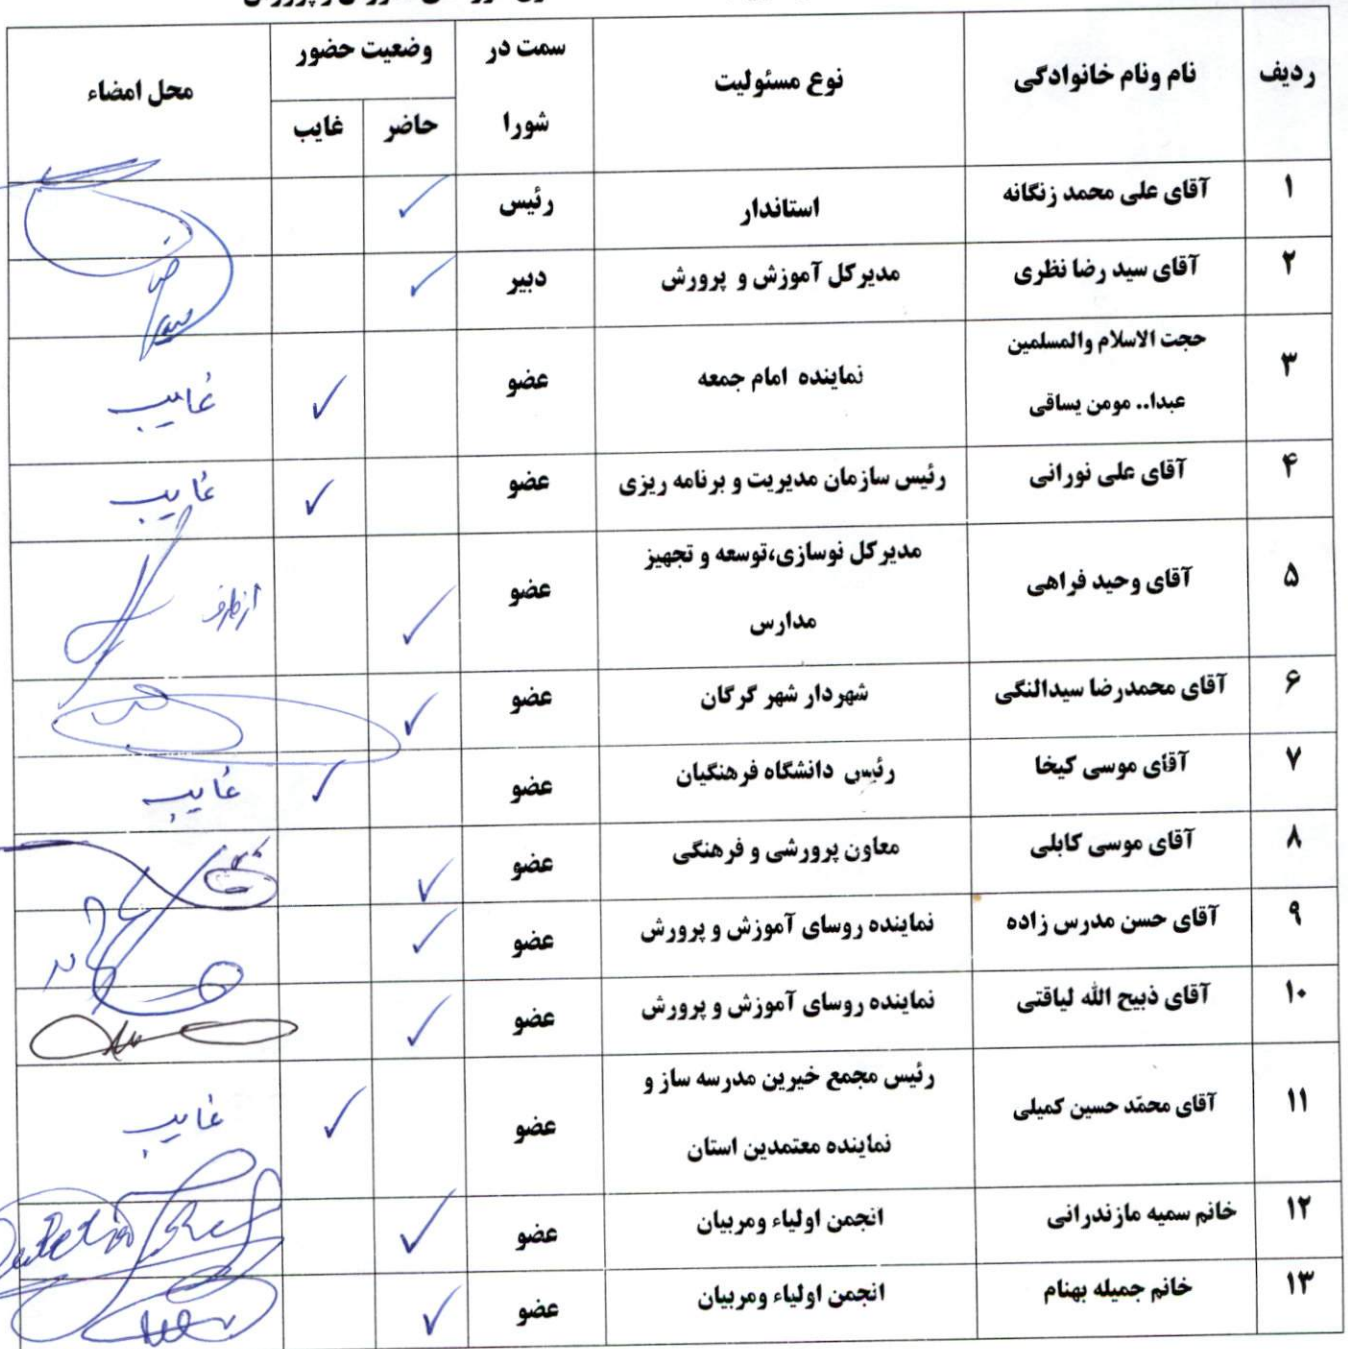 ردیف	نام ونام خانوادگی	نوع مسئولیت	سمت در شورا	وضعیت حضور	محل امضاء
حاضر	غایب
۱	آقای علی محمد زنگانه	استاندار	رئیس	✓
۲	آقای سید رضا نظری	مدیرکل آموزش و پرورش	دبیر	✓
۳	حجت الاسلام والمسلمین	نماینده امام جمعه	عضو	✓	غایب
عبدا.. مومن یساقی
۴	آقای علی نورانی	رئیس سازمان مدیریت و برنامه ریزی	عضو	✓	غایب
۵	آقای وحید فراهی	مدیرکل نوسازی،توسعه و تجهیز	عضو	✓	از طرف
مدارس
۶	آقای محمدرضا سیدالنگی	شهردار شهر گرگان	عضو	✓
۷	آقای موسی کیخا	رئیس دانشگاه فرهنگیان	عضو	✓	غایب
۸	آقای موسی کابلی	معاون پرورشی و فرهنگی	عضو	✓
۹	آقای حسن مدرس زاده	نماینده روسای آموزش و پرورش	عضو	✓
۱۰	آقای ذبیح الله لیاقتی	نماینده روسای آموزش و پرورش	عضو	✓
۱۱	آقای محمّد حسین کمیلی	رئیس مجمع خیرین مدرسه ساز و	عضو	✓	غایب
نماینده معتمدین استان
۱۲	خانم سمیه مازندرانی	انجمن اولیاء ومربیان	عضو	✓
۱۳	خانم جمیله بهنام	انجمن اولیاء ومربیان	عضو	✓